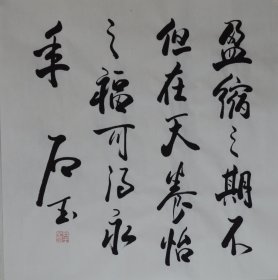 盈缩之期不
但在天养怡
之福可得永
年 石玉